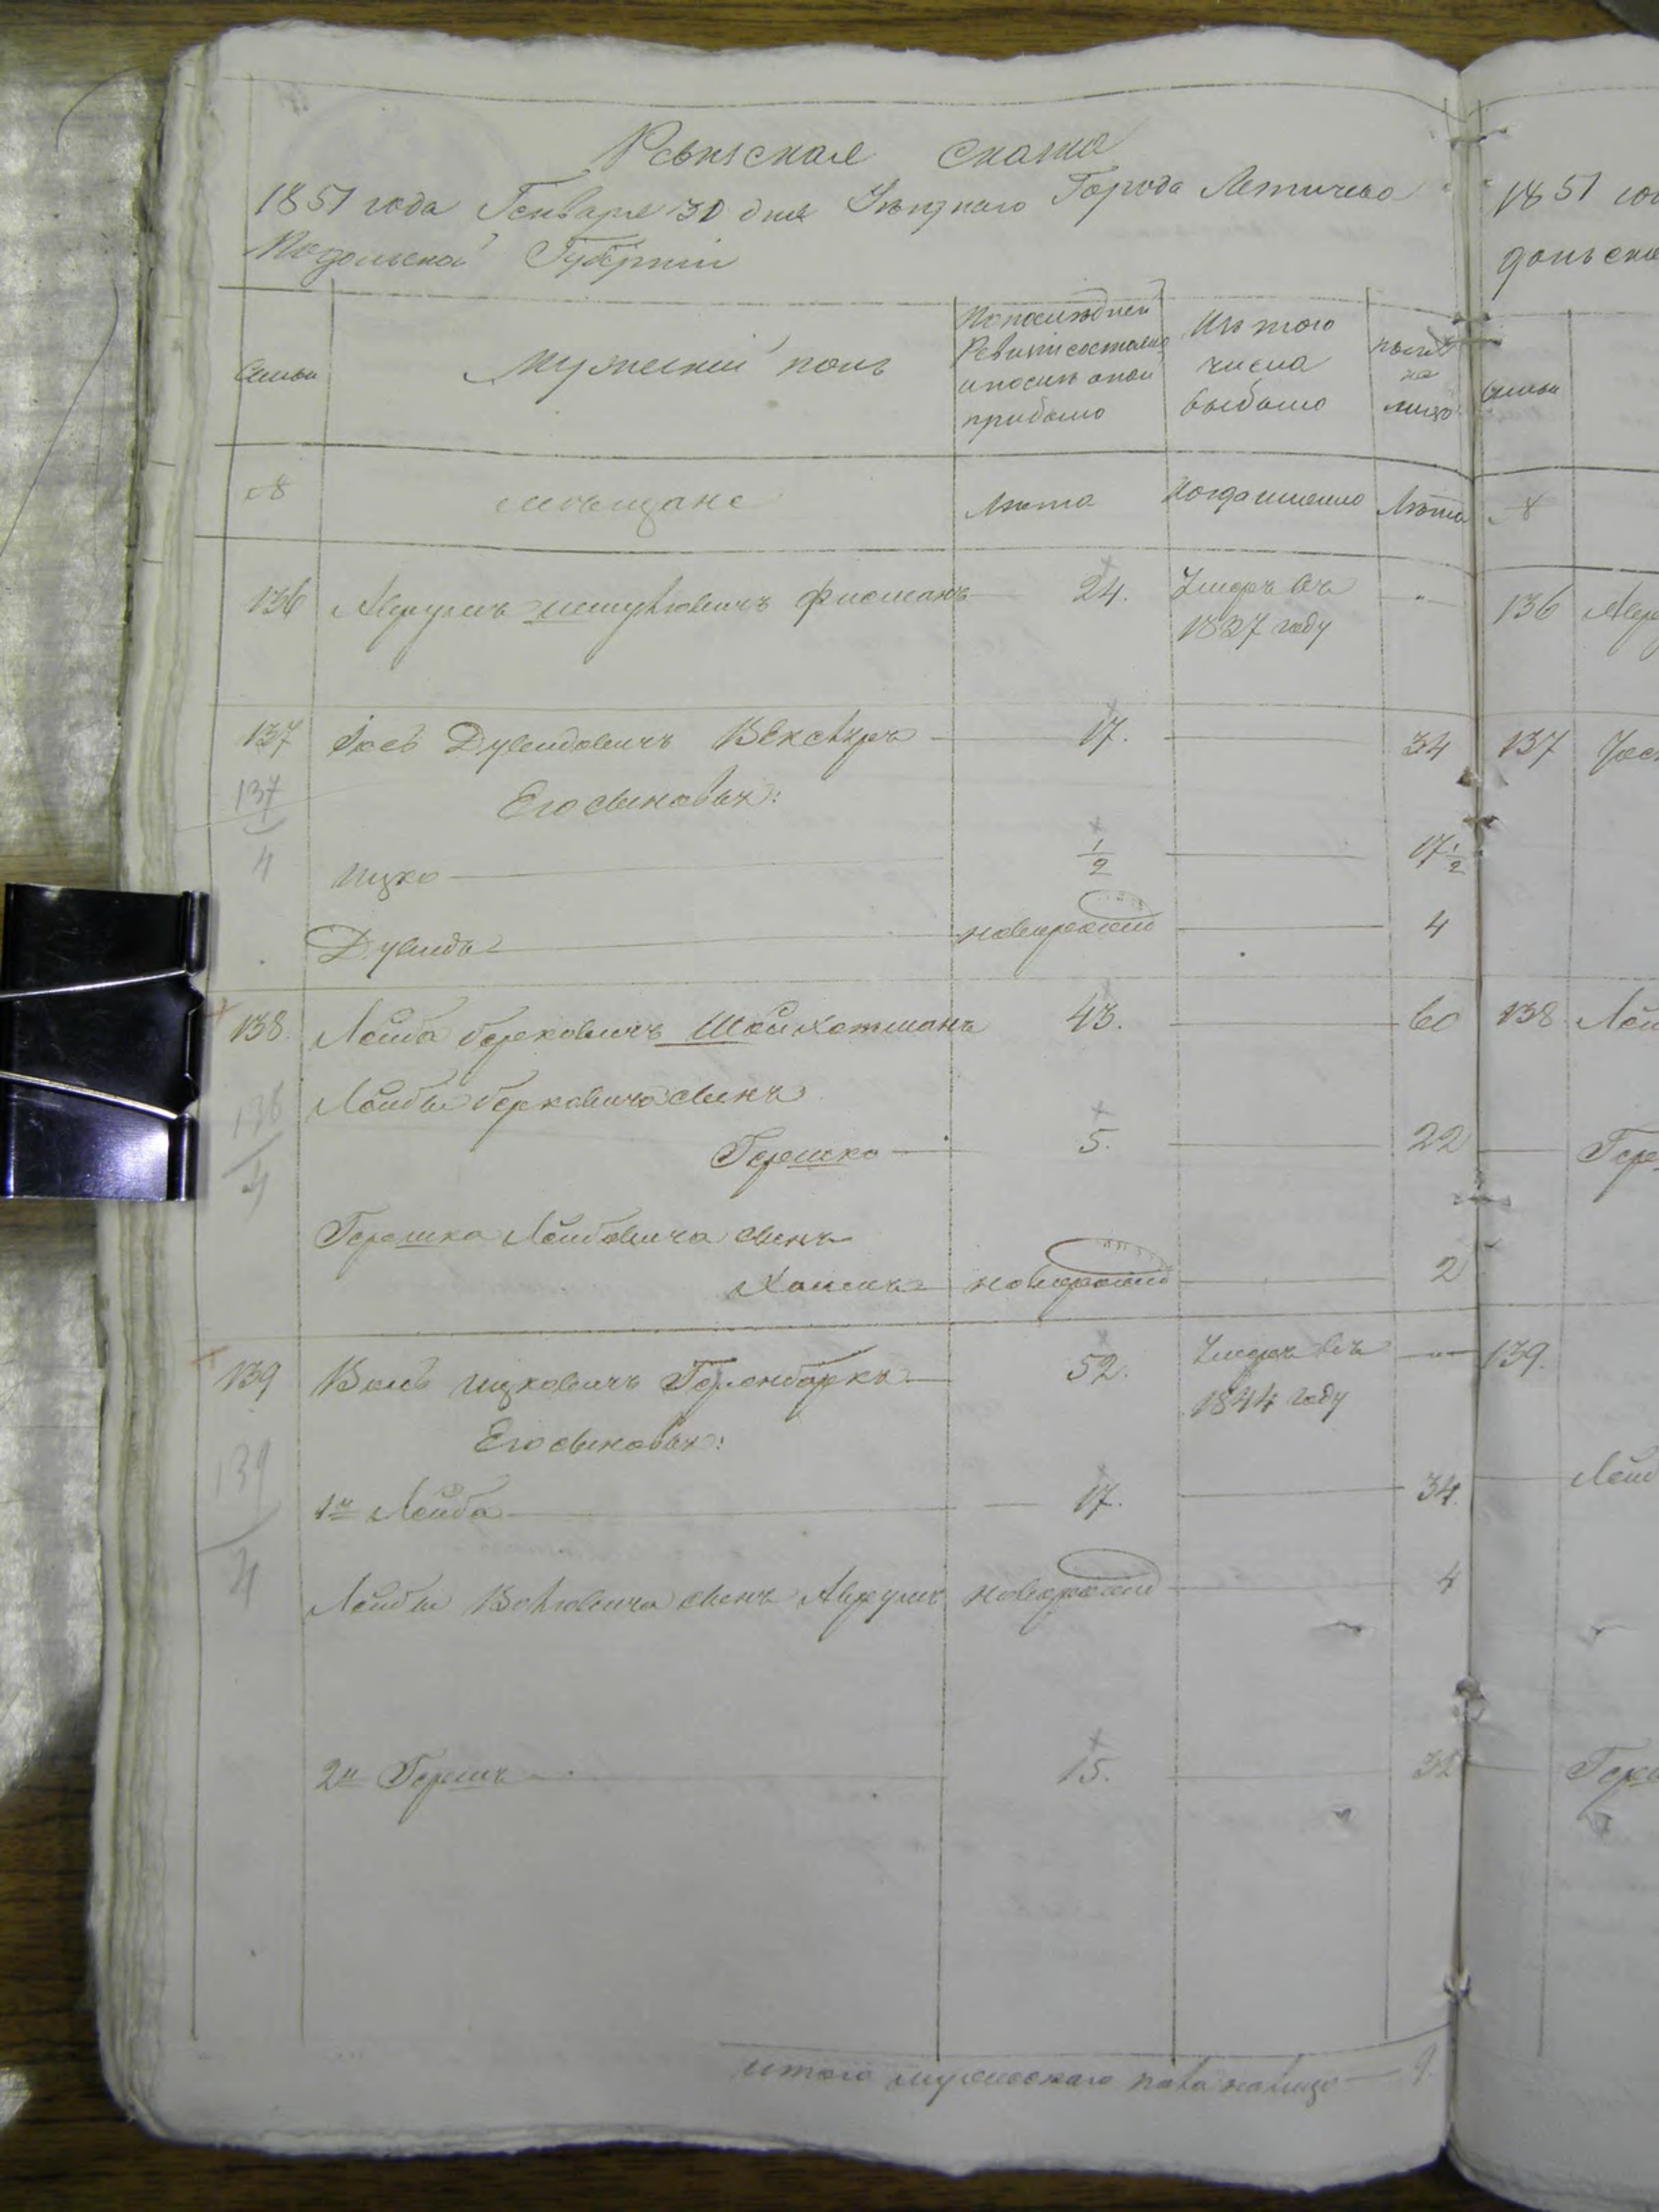 Ревизская сказка
1851 года Генваря 30 дня Уезднаго Города Летичева
Подольской Губернiи
Семьи
Мужескiй полъ
По последней Ревизiи состояло и после оной прибыло
Изъ того числа выбыло
Ныне на лицо
№
мещане
Лета
Когда именно
Лета
136 Аврумъ Фишманъ 24. Умеръ въ
1837 году
137 Iосъ Дувидовичъ Векслеръ 17. 34
137
4
Его сыновья:
Ицко 1/2 17 1/2
Дувидъ новорожденъ 4
138 Лейба Берковичъ 43. 60
138
4
Лейбы Берковича сынъ
Гершко 5. 22
Гершка Лейбовича сынъ
новорожденъ 2
139 Волъ Ицковичъ 52. Умеръ въ
1844 году
139
4
Его сыновья:
1й Лейба 17. 34.
Лейбы Вольковича сынъ Аврумъ новорожденъ 4
2й Гершъ 15. 32
итого мужескаго пола налицо 9
1851
дольской
Семьи
№
136
137
138 Лей
Гер
139.
Лейб
Герш